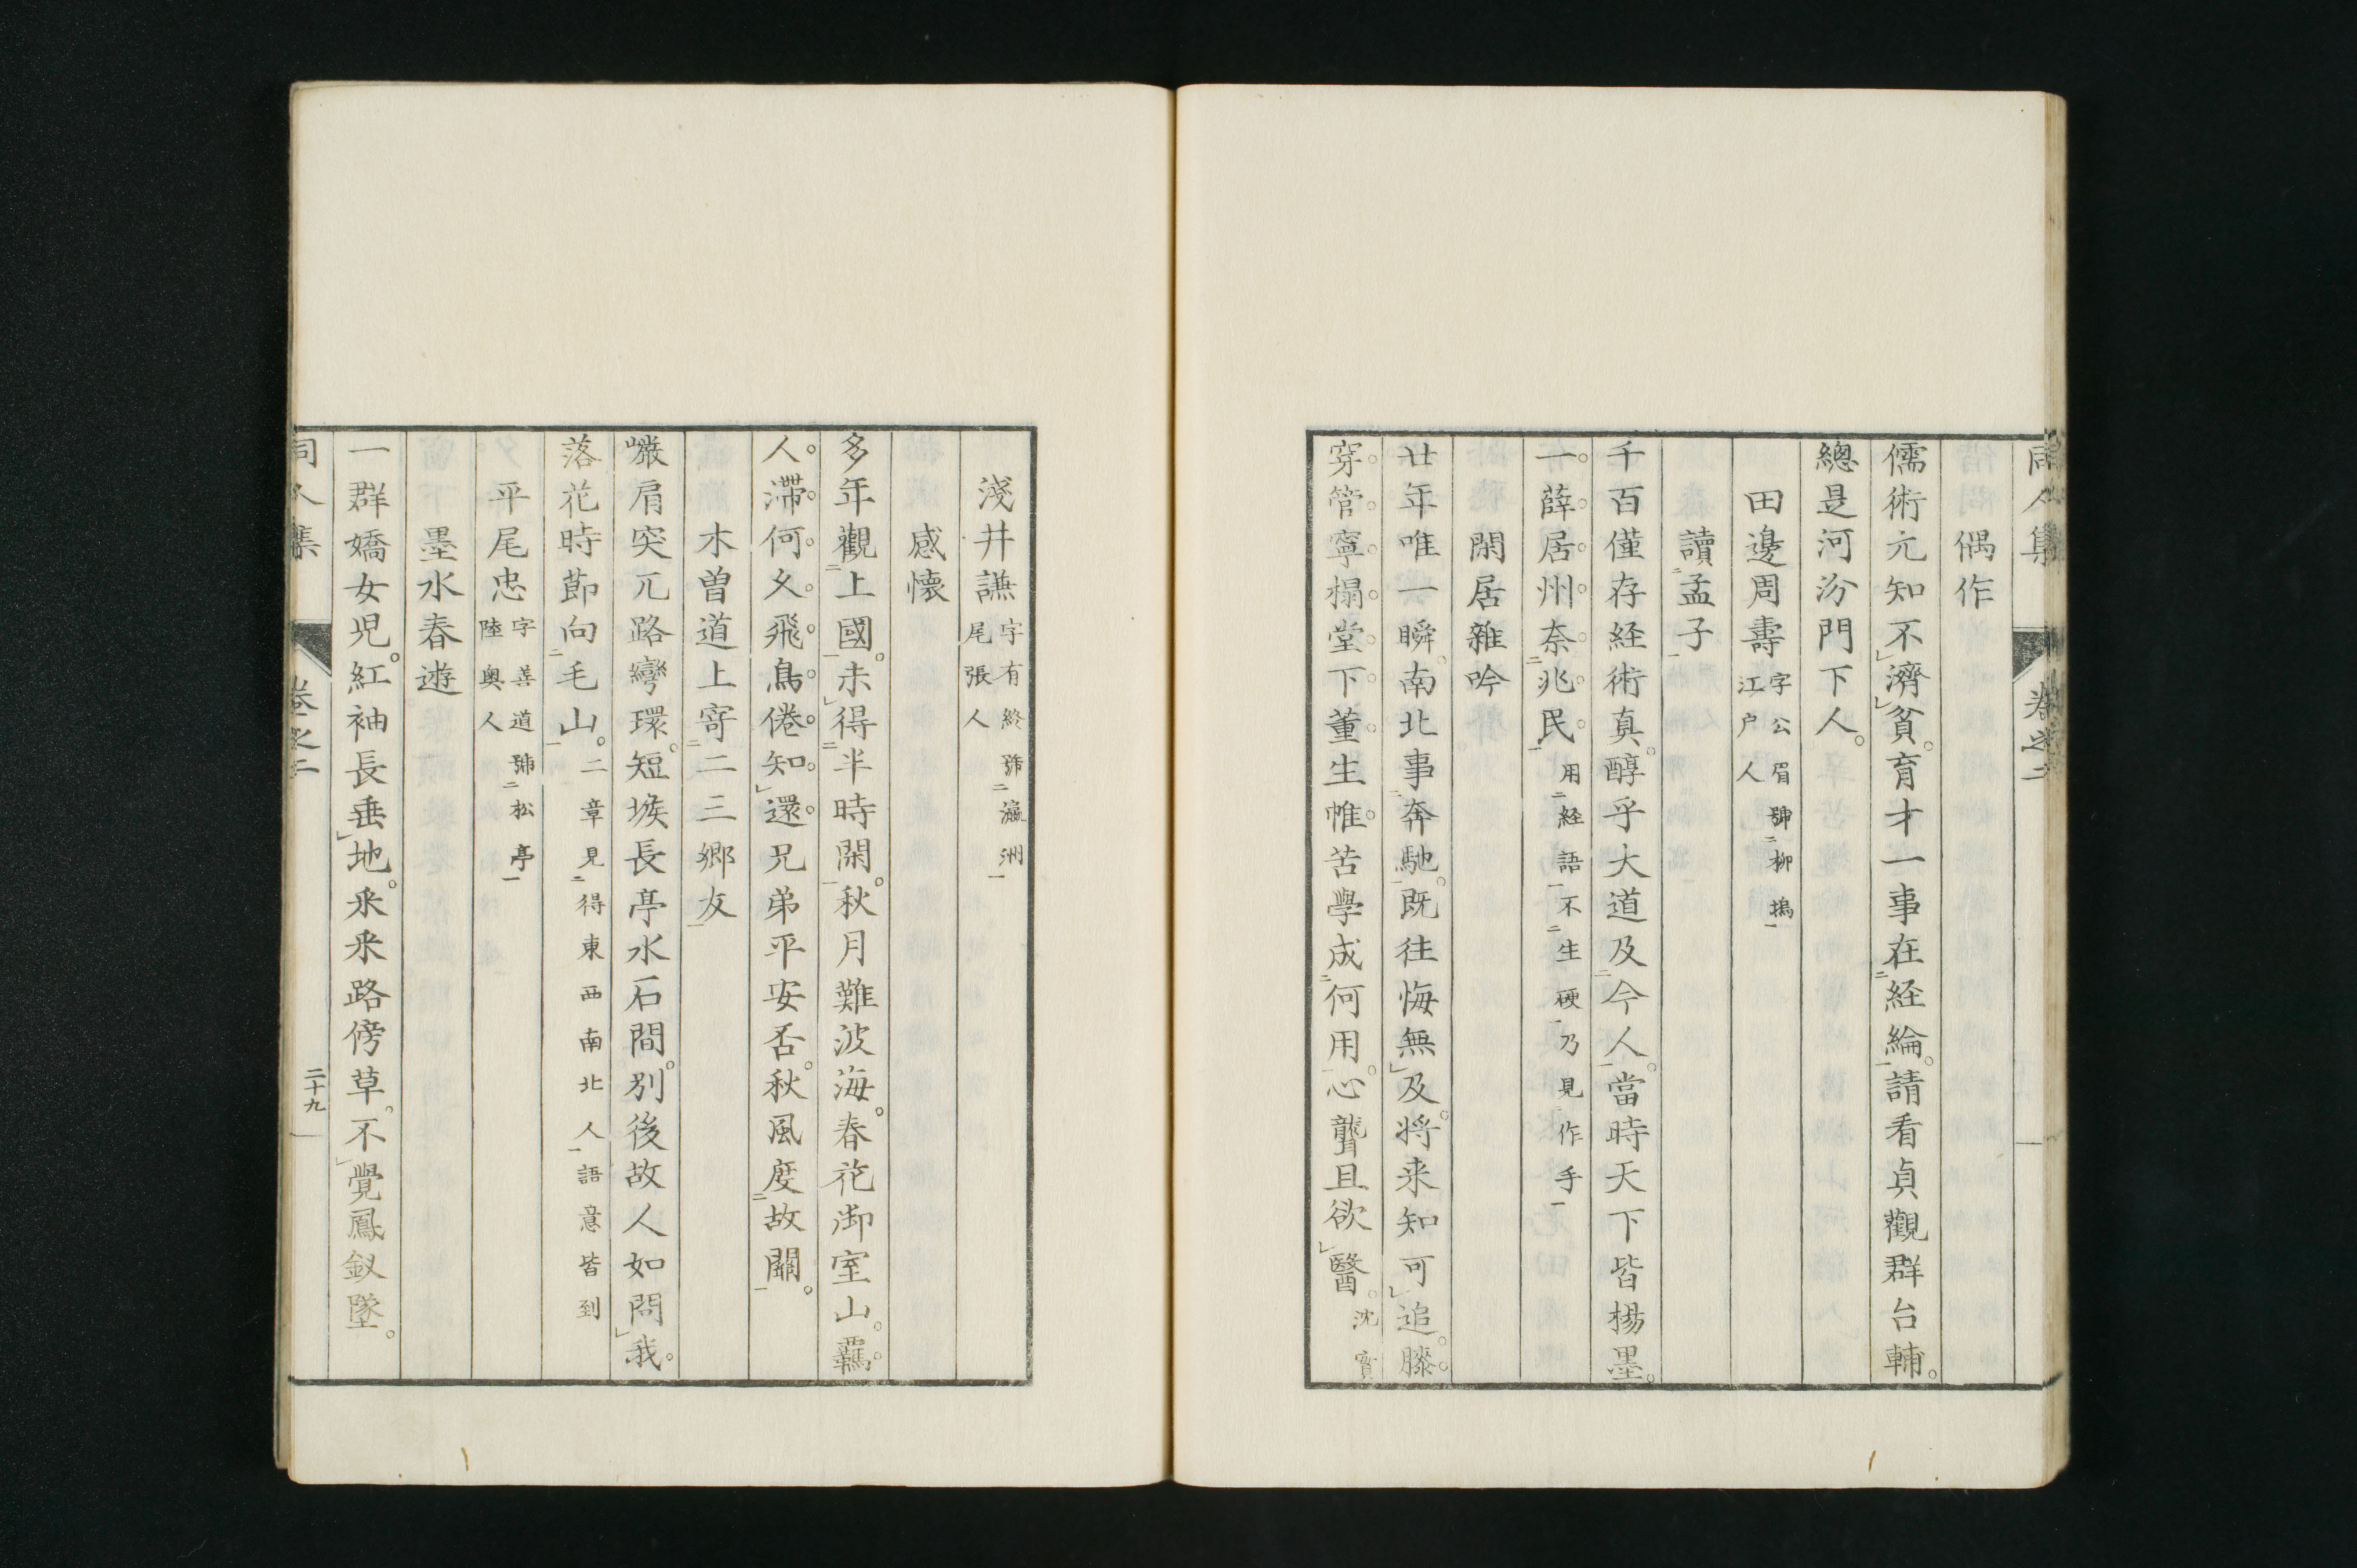 同人集 卷之二
偶作
儒術元知不濟貧。育才一事在経綸。請看貞觀群台輔。
總是河汾門下人。
田邊周壽 字公眉號柳塢 江户人
讀孟子
千百僅存経術真。醇乎大道及今人。當時天下皆楊墨。
一薛居州奈兆民。 用経語不生硬乃見作手
閑居雜吟
廿年唯一瞬。南北事奔馳。既往悔無及。将来知可追。膝
穿管寧榻。堂下董生帷。苦學成何用。心聾且欲醫。 沈實
淺井謙 字有終號瀛洲 尾張人
感懐
多年觀上國。未得半時閑。秋月難波海。春花御室山。羈
人滯何久。飛鳥倦知還。兄弟平安否。秋風度故關。
木曽道上寄二三郷友
巖肩突兀路彎環。短堠長亭水石間。別後故人如問我。
落花時莭向毛山。 二章見得東西南北人語意皆到
平尾忠 字善道號松亭 陸奥人
墨水春遊
一群嬌女児。紅袖長垂地。釆釆路傍草。不覺鳳釵墜。
同人集 卷之二 二十九